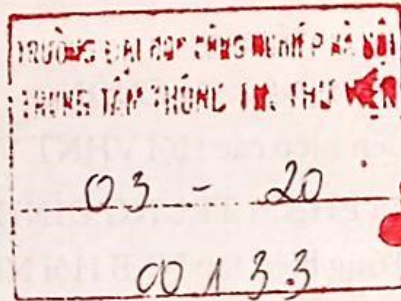 TRƯỜNG ĐẠI HỌC CÔNG NGHIỆP HÀ NỘI
TRUNG TÂM THÔNG TIN THƯ VIỆN
03 - 20
00133